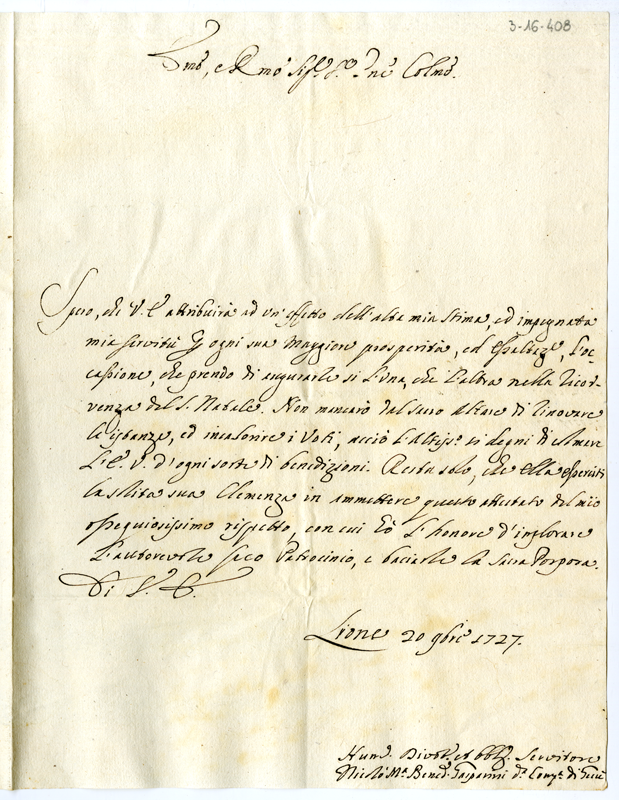 3-16-408
Emo, e Rmo Sig.r Sig.r Pne Colmo.
Spero, che V. E. attribuirà ad un'effetto dell'alta mia stima, ed impegnata
mia servitù ogni sua maggior prosperità, ed esaltaz.e, l'oc-
cassione, che prendo di augurarle si l'una, che l'altra nella ricor-
renza del S. Natale. Non mancarò dal sacro Altare di rinovare
le istanze, ed incalorire i Voti, acciò l'Altiss.o si degni di colmare
L'E. V. d'ogni sorte di benedizioni. Resta solo, che ella eserciti
la solita sua Clemenza in ammettere questo attestato del mio
ossequiosissimo rispetto, con cui hò l'honore d'implorare
l'autorevole suo Patrocinio, e baciarle la Sacra Porpora.
Di V. E.
Lione 20 9bre 1727.
Hum.o Divot. et obbl. Servitore
Nicolò M.a Bened. Gasparini d.a Comp.a di Giesù